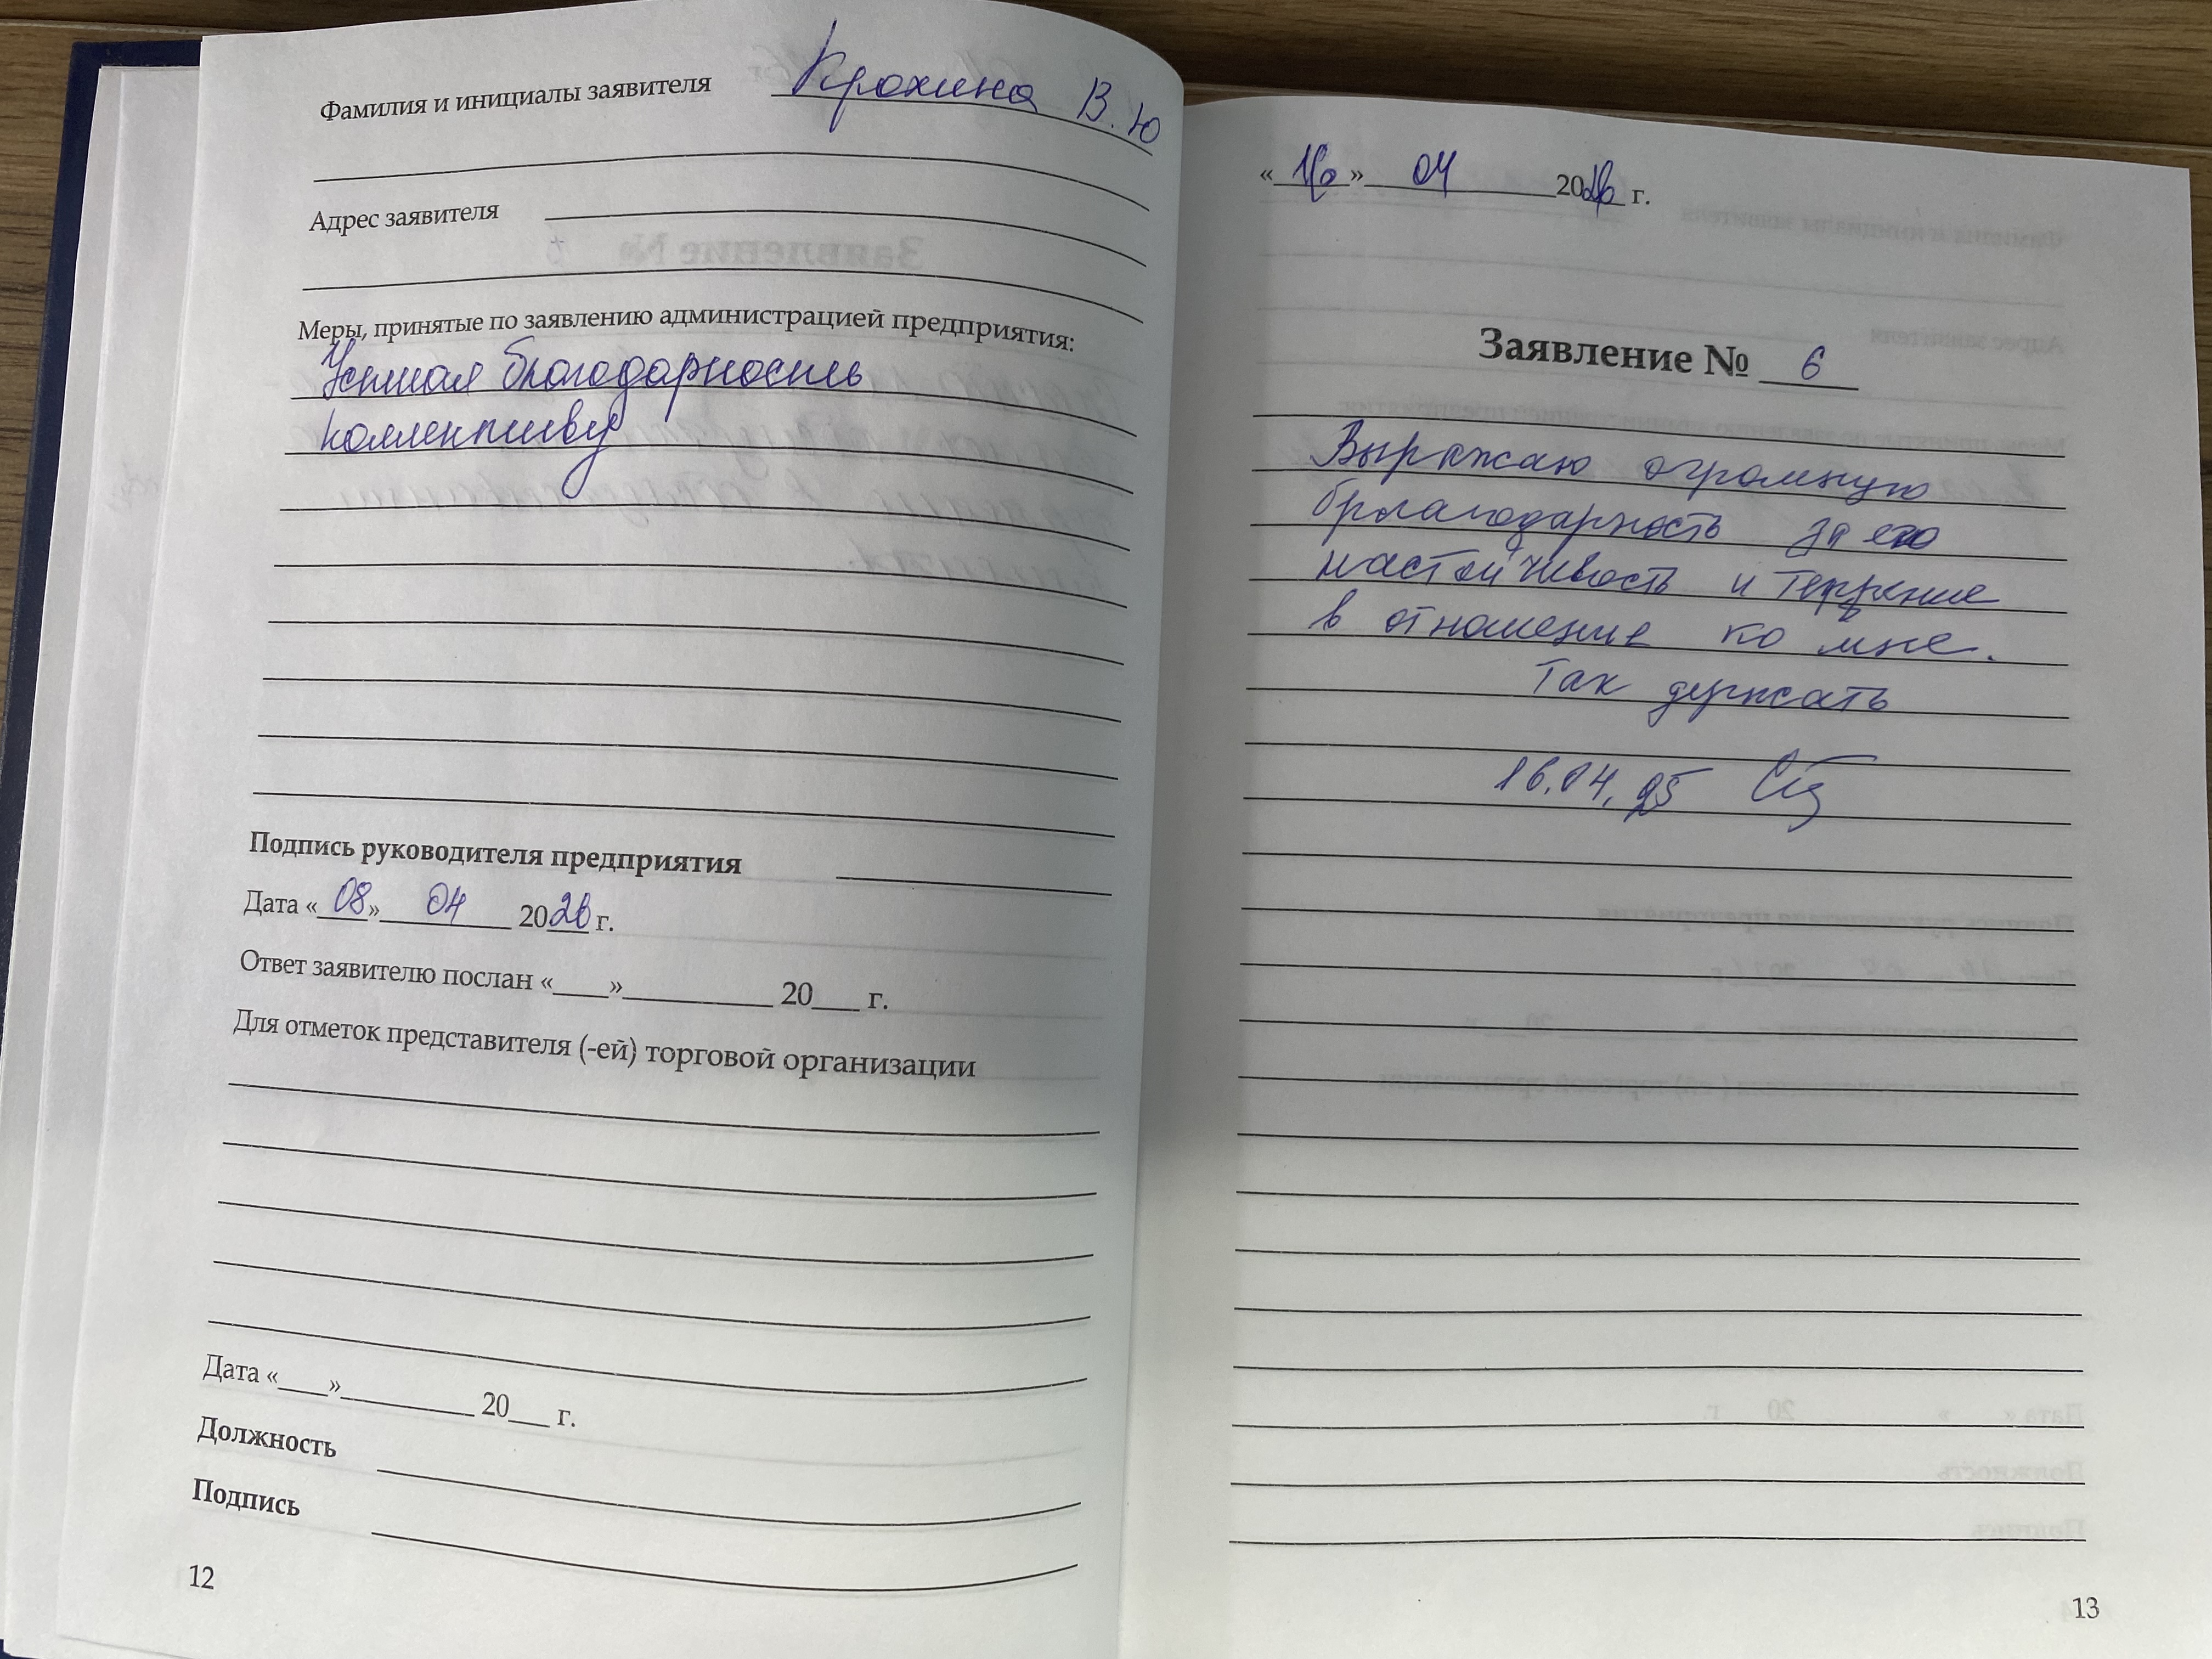 Фамилия и инициалы заявителя Крохина В. Ю
Адрес заявителя
Меры, принятые по заявлению администрацией предприятия:
Устная благодарность
коллективу
Подпись руководителя предприятия
Дата «08» 04 2026 г.
Ответ заявителю послан «___»__________ 20___ г.
Для отметок представителя (-ей) торговой организации
Дата «___»__________ 20___ г.
Должность
Подпись
12
«16» 04 2026 г.
Заявление № 6
Выражаю огромную
благодарность за его
настойчивость и терпение
в отношение ко мне.
Так держать
16.04.25
13